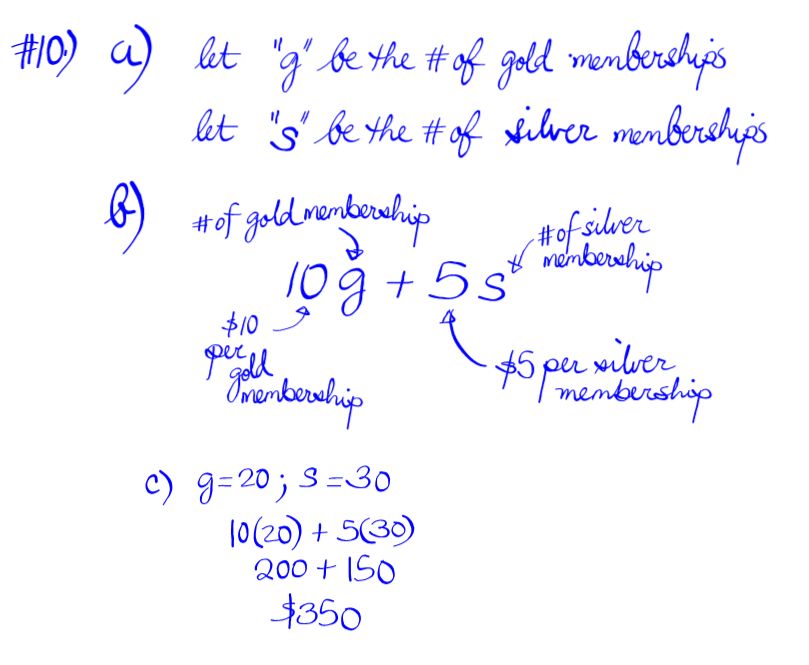 #10.) a) let "g" be the # of gold memberships
let "s" be the # of silver memberships
b) # of gold membership
# of silver
membership
10g + 5s
$10
per
gold
membership
$5 per silver
membership
c) g=20; s=30
10(20) + 5(30)
200 + 150
$350